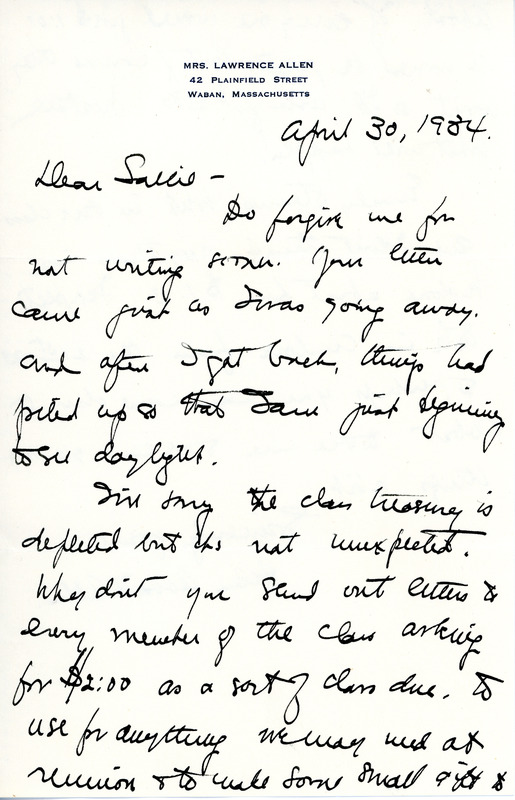 MRS. LAWRENCE ALLEN
42 PLAINFIELD STREET
WABAN, MASSACHUSETTS
April 30, 1934.
Dear Sallie -
Do forgive me for
not writing sooner. Your letter
came just as I was going away.
and after I got back, things had
piled up so that I am just beginning
to see daylight.
I'm sorry the class treasury is
depleted but its not unexpected.
Why don't you send out letters to
every member of the class asking
for $2:00 as a sort of class due. to
use for anything we may need at
reunion & to make some small gift to